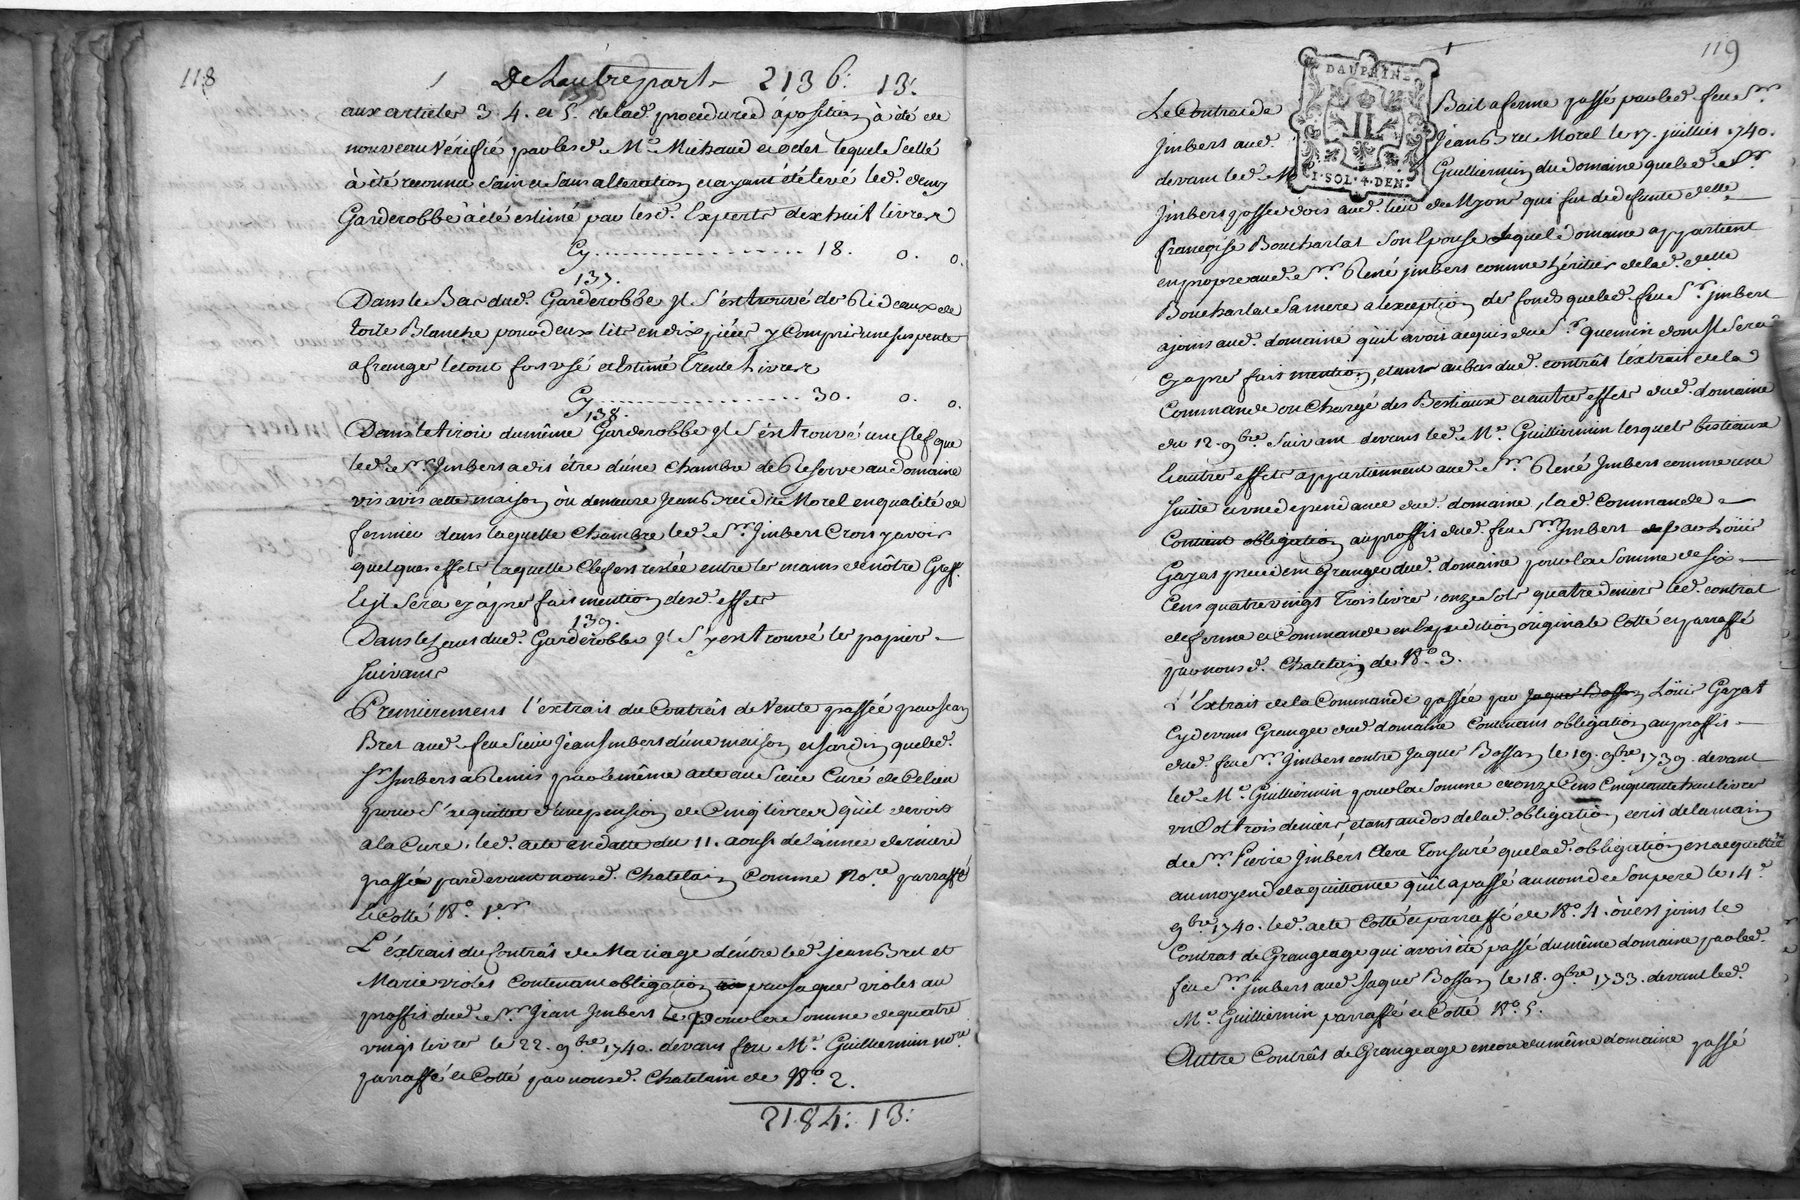 118
De Lautre part 2136: 13:
136
aux articles 3 4. et 5. de lad. procedure d'aposition à été de
nouveau Vérifié par lesd. Me. Michaud et Odet lequel Scellé
à été reconnu sain et sans alteration et ayant été levé led. demy
Garderobbe à été estimé par lesd. Experts dixhuit livres
Cy .................. 18. 0. 0.
137.
Dans le Bas dud. Garderobbe Jl S'est trouvé des Rideaux de
toile Blanche pour deux lits en dix piéces y Compris une suspente
a franges letout fort usé et Estimé Trente Livres
Cy .................. 30. 0. 0.
138.
Dans le tiroir du même Garderobbe Jl S'est trouvé une Clef que
led. Sr. Jmbert a dit être d'une Chambre de Reserve au domaine
vis avis cette maison où demeure Jean Bret dit Morel en qualité de
fermier dans laquelle Chambre led. Sr. Jmbert Croit y avoir
quelques effets laquelle Clef est restée entre les mains de nôtre Greff.
Et Jl Sera cy aprés fait mention desd. effets
139.
Dans le haut dud. Garderobbe Jl S'y est trouvé les papiers
Suivants
Premierement l'extrait du Contrât de Vente passée par Jean
Bret aud. feu Sieur Jean Jmbert d'une maison et Jardin que led.
Sr. Jmbert a Remis par le même acte au Sieur Curé de
pour S'acquitter d'une pension de Cinq livres qu'il devoit
a la Cure, led. acte en datte du 11. aoust de l'année derniere
passée pardevant nousd. Chatelain Comme Nore. parraffé
Et Cotté No. 1er.
L'extrait du Contrât de Mariage d'entre led. Jean Bret et
Marie violet Contenant obligation par Jaques violet au
proffit dud. Sr. Jean Jmbert pour la Somme de quatre
vingt livres le 22. 9bre. 1740. devant feu Me. Guillermin nore.
parraffé et Cotté par nousd. Chatelain de No. 2.
2184: 13:
119
DAUPHINE
II
1. SOL. 4. DEN.
Le Contrat de Bail a ferme passé par led. feu Sr.
Jmbert aud. Jean Bret Morel le 17. juillet 1740.
devant led. Me Guillermin du domaine que led. Sr.
Jmbert possedoit aud. lieu de qui fut de defunte delle.
françoise Boucharlat Son Epouse lequel domaine appartient
en propre aud. Sr. René jmbert comme héritier de lad. delle
Boucharlat Sa mere a l'exception des fonds que led. feu Sr. jmbert
ajoint aud. domaine qu'il avoit acquis du Sr. quemin dont Jl Sera
Cy aprés fait mention, etant au bas dud. contrât l'éxtrait de la
Commande ou Chargé des Bestiaux et autres effets dud. domaine
du 12. 9bre. Suivant devant led. Me. Guillermin lesquels bestiaux
Et autres effets appartiennent aud. Sr. René Jmbert comme une
Suitte et une dependance dud. domaine, lad. Commande
Contient obligation au proffit dud. feu Sr. Jmbert par Loüis
Gayat precedent Granger dud. domaine pour la Somme de Six
Cent quatre vingt Trois livres onze Sols quatre deniers led. contrat
de ferme et Commande en Expedition originale Cotté et parraffé
par nousd. Chatelain de No. 3.
L'Extrait de la Commande passée par Jaques Bossan Loüis Gayat
Cy devant Granger dud. domaine Contenant obligation au proffit
dud. feu Sr. Jmbert contre Jaques Bossan le 19. 9bre. 1739. devant
led. Me. Guillermin pour la Somme de onze Cent Cinquante huit livres
un Sol trois deniers, etant au dos de lad. obligation ecrit de la main
du Sr. Pierre Jmbert Clerc Tonsuré que lad. obligation est acquittée
au moyend de la quittance qu'il a passé au nom de Son pere le 14e.
9bre. 1740. led. acte Cotté et parraffé de No. 4. où est joint le
Contrat de Grangeage qui avoit été passé du même domaine par led.
feu Sr. Jmbert aud. Jaques Bossan le 18. 9bre. 1733. devant led.
Me. Guillermin parraffé et Cotté No. 5.
Autre Contrât de Grangeage encore du même domaine passé